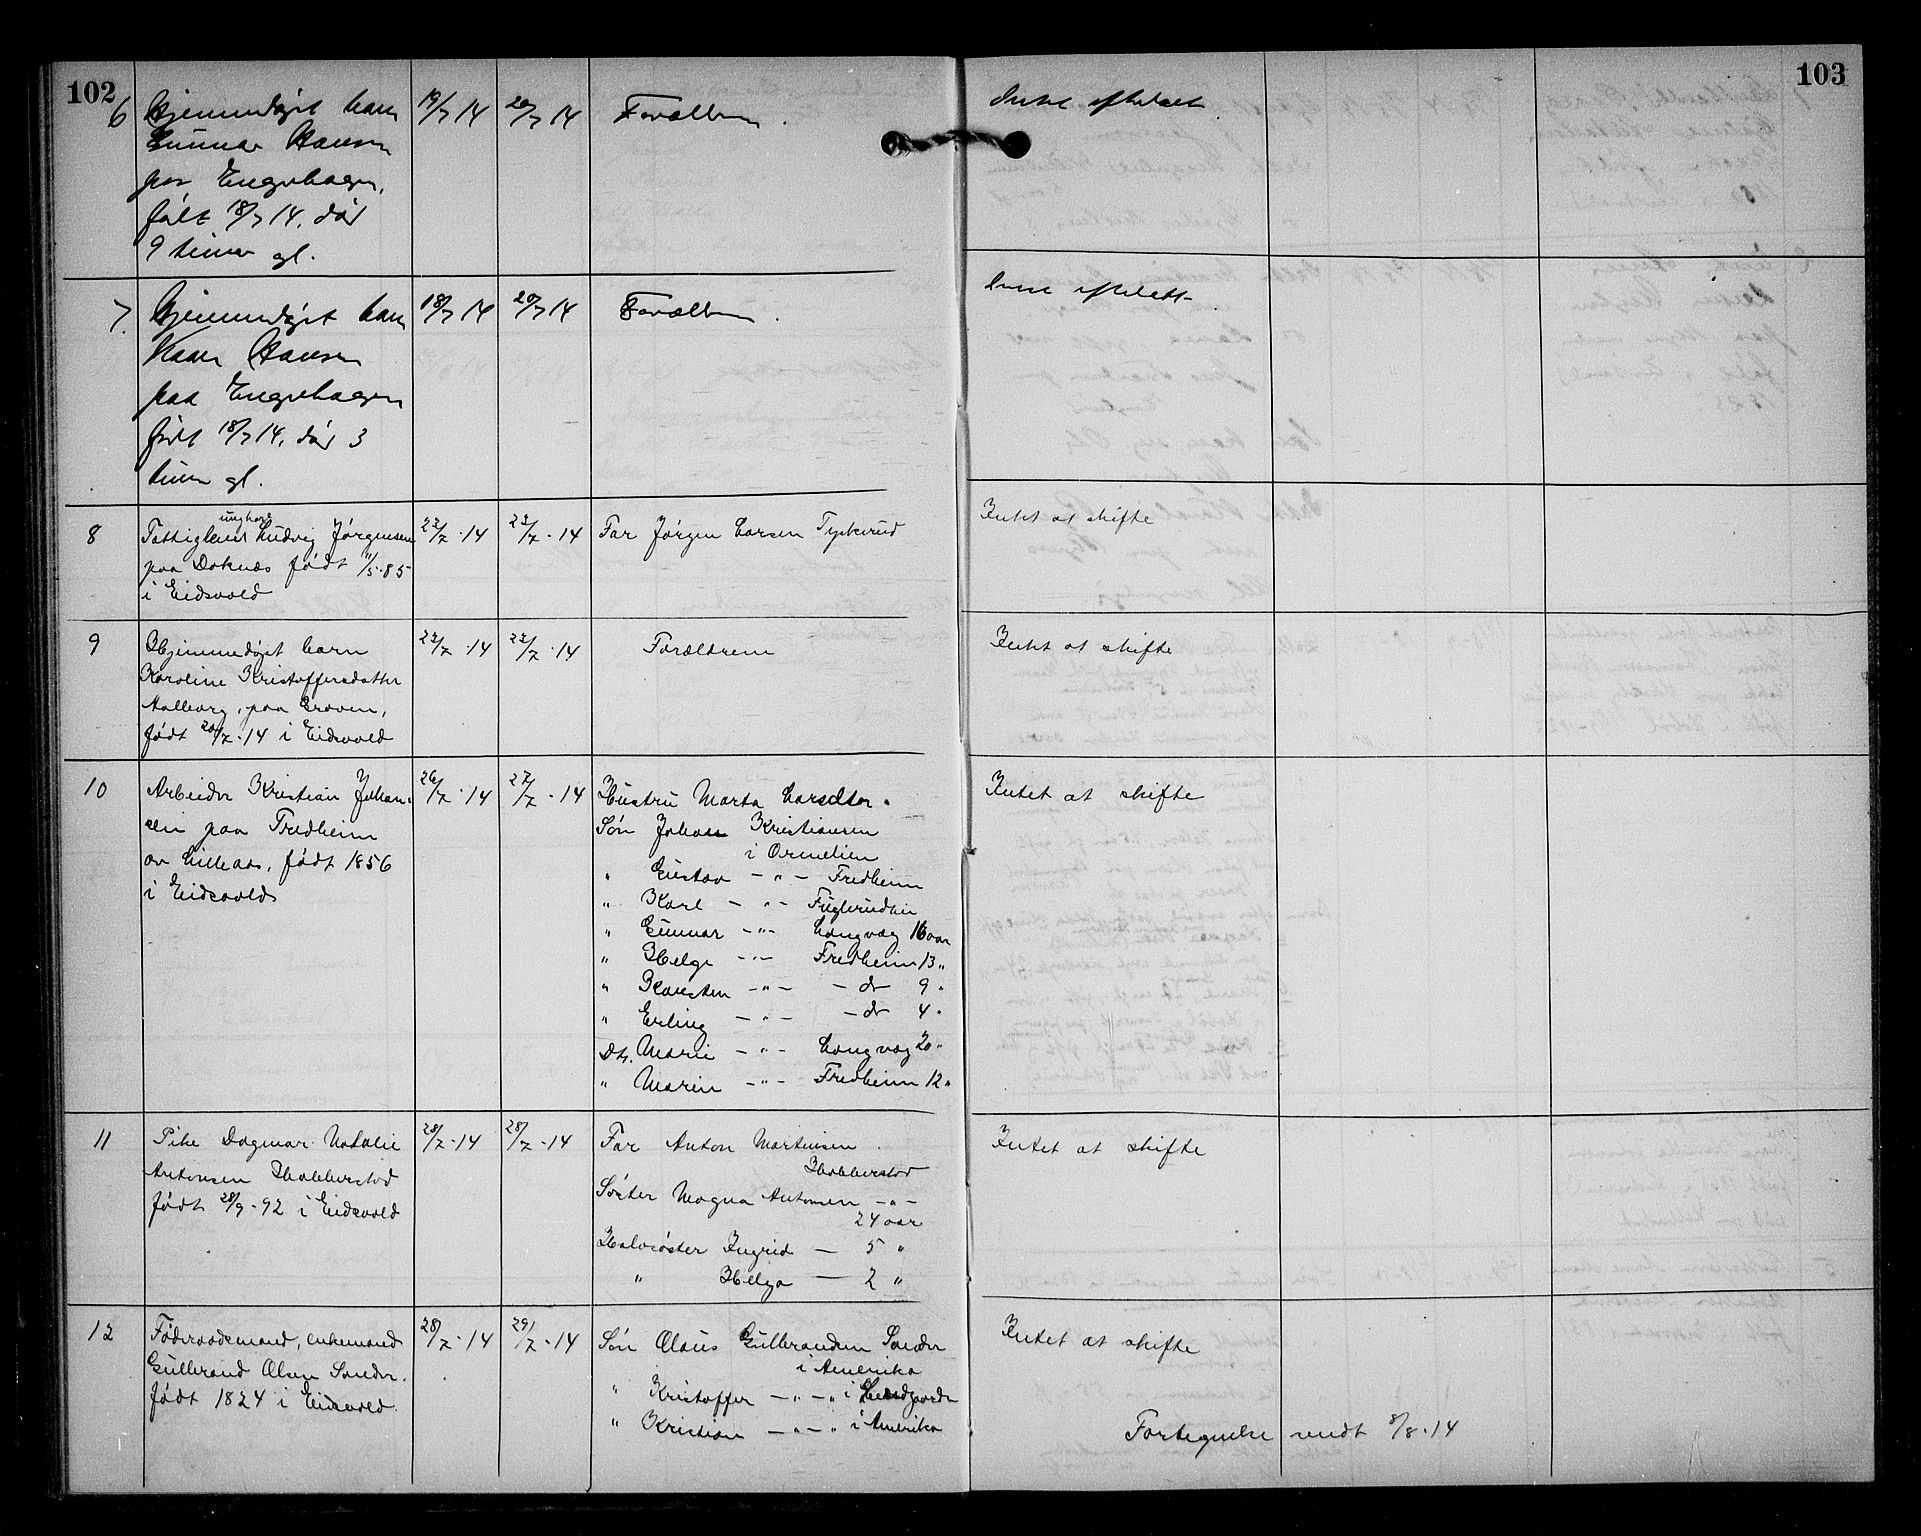 102
6 Hjemmedøpt barn 19/7 14 20/7 14 Forældren.
Gunnar Hansen
paa Engehagen,
født 18/7 14, død
9 timer gl.
7. Hjemmedøpt barn 18/7 14 20/7 14 Forældren.
Hansen
paa Engehagen
født 18/7 14, død 3
timer gl.
8 Fattiglem ungkarl Ludvig Jørgensen 22/7·14 23/7·14 Far Jørgen Larsen Tyskerud
paa Doknæs født 11/5·85
i Eidsvold
9 Hjemmedøpt barn 22/7·14 23/7·14 Forældrene
Karoline Kristoffersdatter
Aalborg, paa Groven,
født 20/7·14 i Eidsvold
10 Arbeider Kristian Johan- 26/7·14 27/7·14 Hustru Marta Larsdtter.
sen paa Fredheim Søn Johan Kristiansen
av Lilleaas, født 1856 i Ormelien
i Eidsvold " Gustav —"— Fredheim
" Karl —"— Fuglerudeie
" Gunnar —"— Langvæg 16 aar
" Helge —"— Fredheim 13 "
" Karsten —"— —do 9 "
" Erling —"— —do 4 "
Dtr. Marie —"— Langvæg 20 "
" Maren —"— Fredheim 12 "
11 Pike Dagmar Natalie 28/7·14 28/7·14 Far Anton Martinsen
Antonsen Habberstad Habberstad
født 28/9·92 i Eidsvold Søster Magna Antonsen —"—
24 aar
Halvsøster Ingrid — 5 "
" Helga — 2 "
12 Føderaadsmand, enkemand 28/7·14 29/7·14 Søn Olaus Gulbrandsen Sander
Gulbrand Olsen Sander. i Amerika
født 1824 i Eidsvold. " Kristoffer —"—"
" Kristian —"—" i Amerika
103
Intet efterladt
Intet efterladt
Intet at skifte
Intet at skifte
Intet at skifte
Intet at skifte
Intet at skifte
Fortegnelse sendt 8/8·14